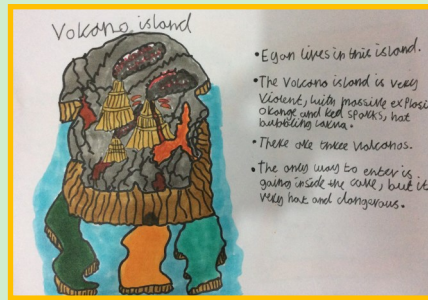 Volcano island
• Egan lives in this island.
• The Volcano island is very
Violent, with massive explosi
orange and Red sparks, hot
bubbling larva.
• There are three volcanos.
• The only way to enter is
going inside the cave, but it
very hot and dangerous.